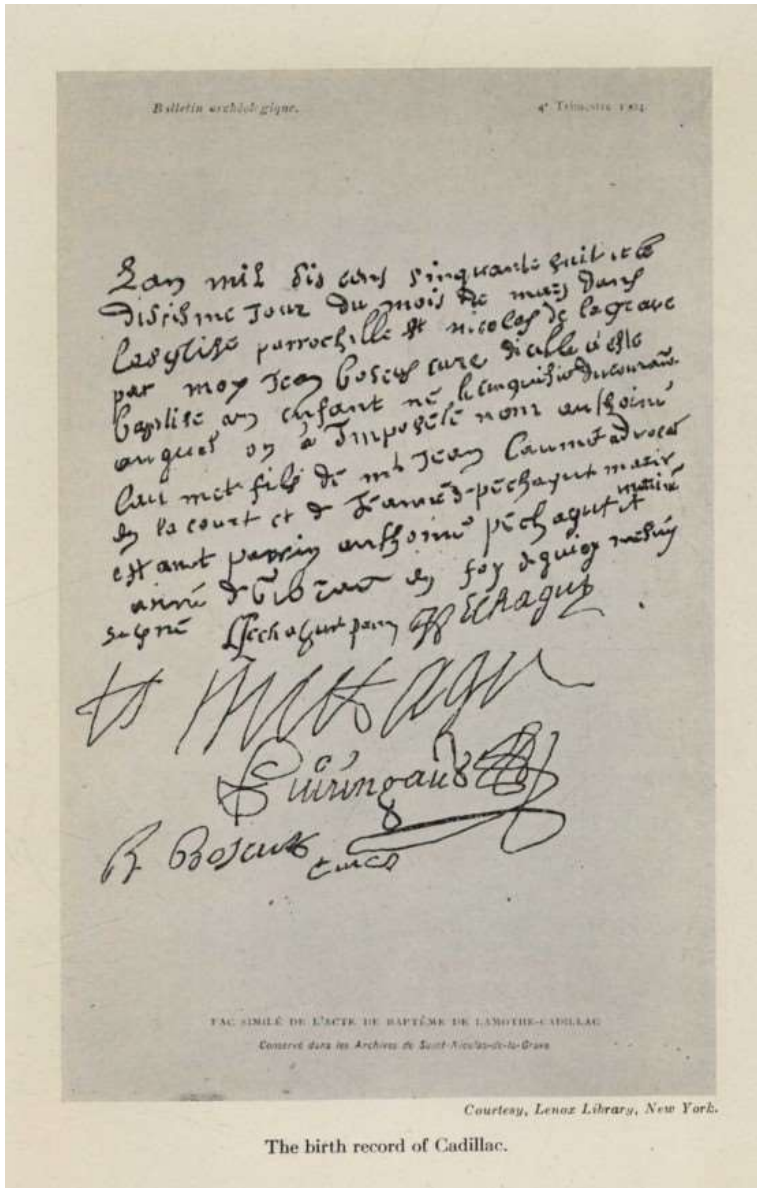 Bulletin archéologique.
4e Trimestre 1904.
Lan mil sis cens sinquante huit et le
disiesme Jour du mois de mars dans
lesglise parrochille St nicolas de lagrave
par moy Jean boscus cure dicelle a este
baptise un enfant né le cinquiesme du courant
auquel on a Imposé le nom anthoine
laumet fils de mr Jean laumet advocat
en la court et de Jeanne de pechagut maries
estant parrin anthoine pechagut
en foy de quoy
signé Pechagut parrin Pechagut
Boscus
curé
FAC SIMILÉ DE L'ACTE DE BAPTÊME DE LAMOTHE-CADILLAC
Conservé dans les Archives de Saint-Nicolas-de-la-Grave
Courtesy, Lenox Library, New York.
The birth record of Cadillac.